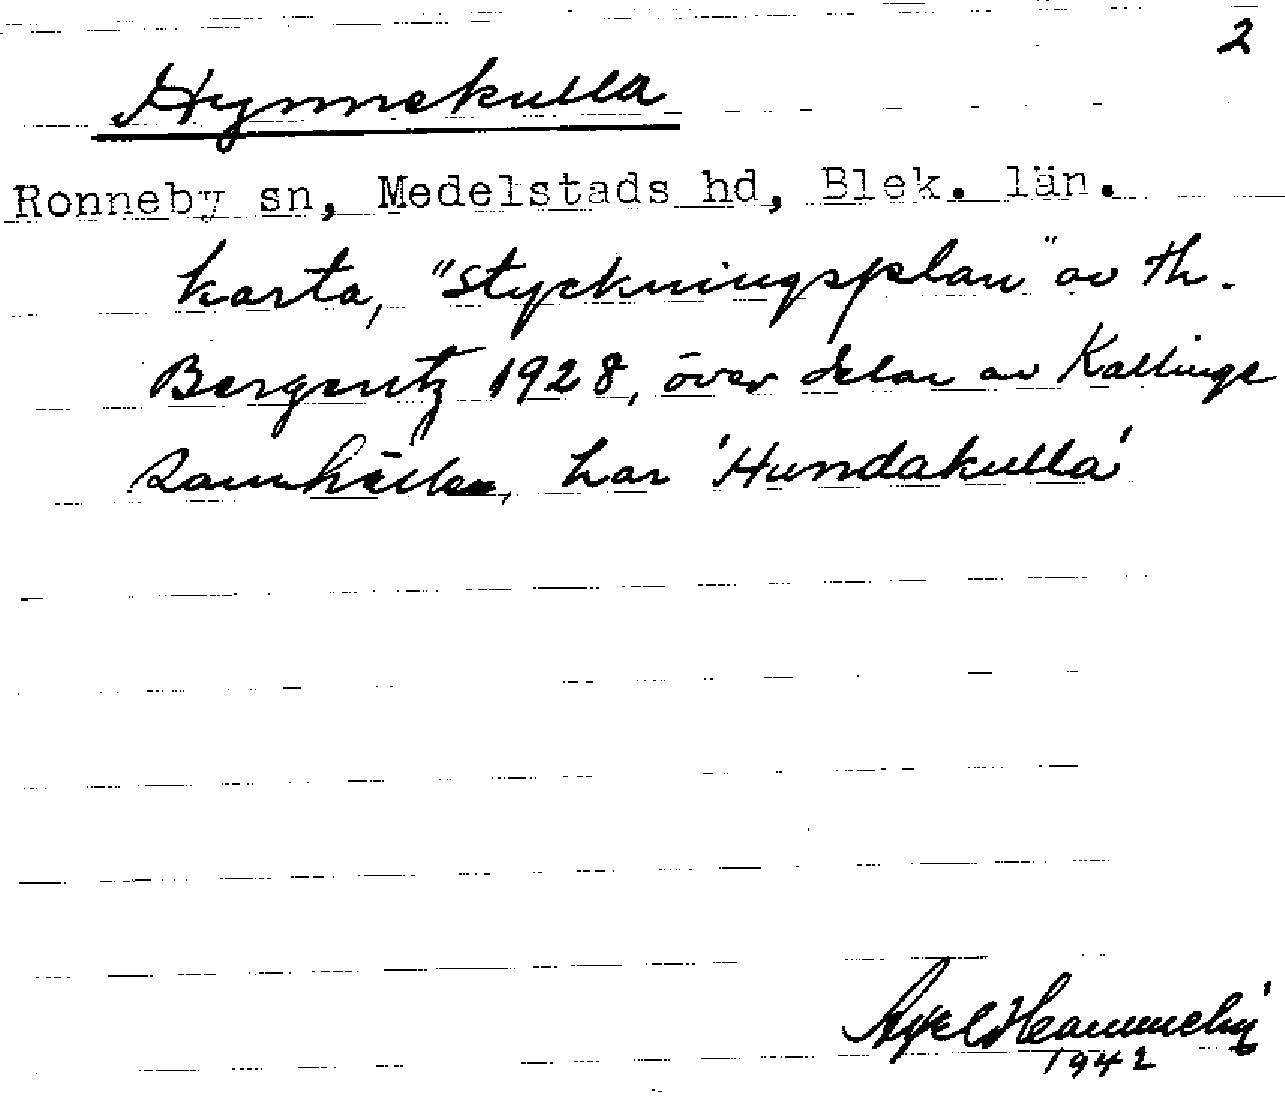 2
Hynnekulla
Ronneby sn, Medelstads hd, Blek. län.
karta, "Styckningsplan" av Th.
Bergentz 1928, över delar av Kallinge
samhälle, har 'Hundakulla'
Axel
1942